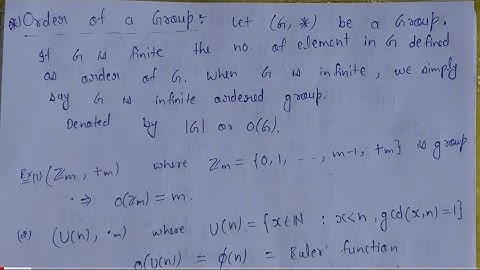 *) Order of a Group:- Let (G, *) be a Group.
If G is finite the no. of element in G defined
as order of G. When G is infinite, we simply
say G is infinite ordered group.
Denoted by |G| or O(G).
Ex(1) (Zm, +m) where Zm = {0, 1, ---, m-1, +m} is group
⇒ O(Zm) = m.
(2) (U(n), ·m) where U(n) = {x∈N : x<n, gcd(x,n)=1}
O(U(n)) = φ(n) = Euler' function